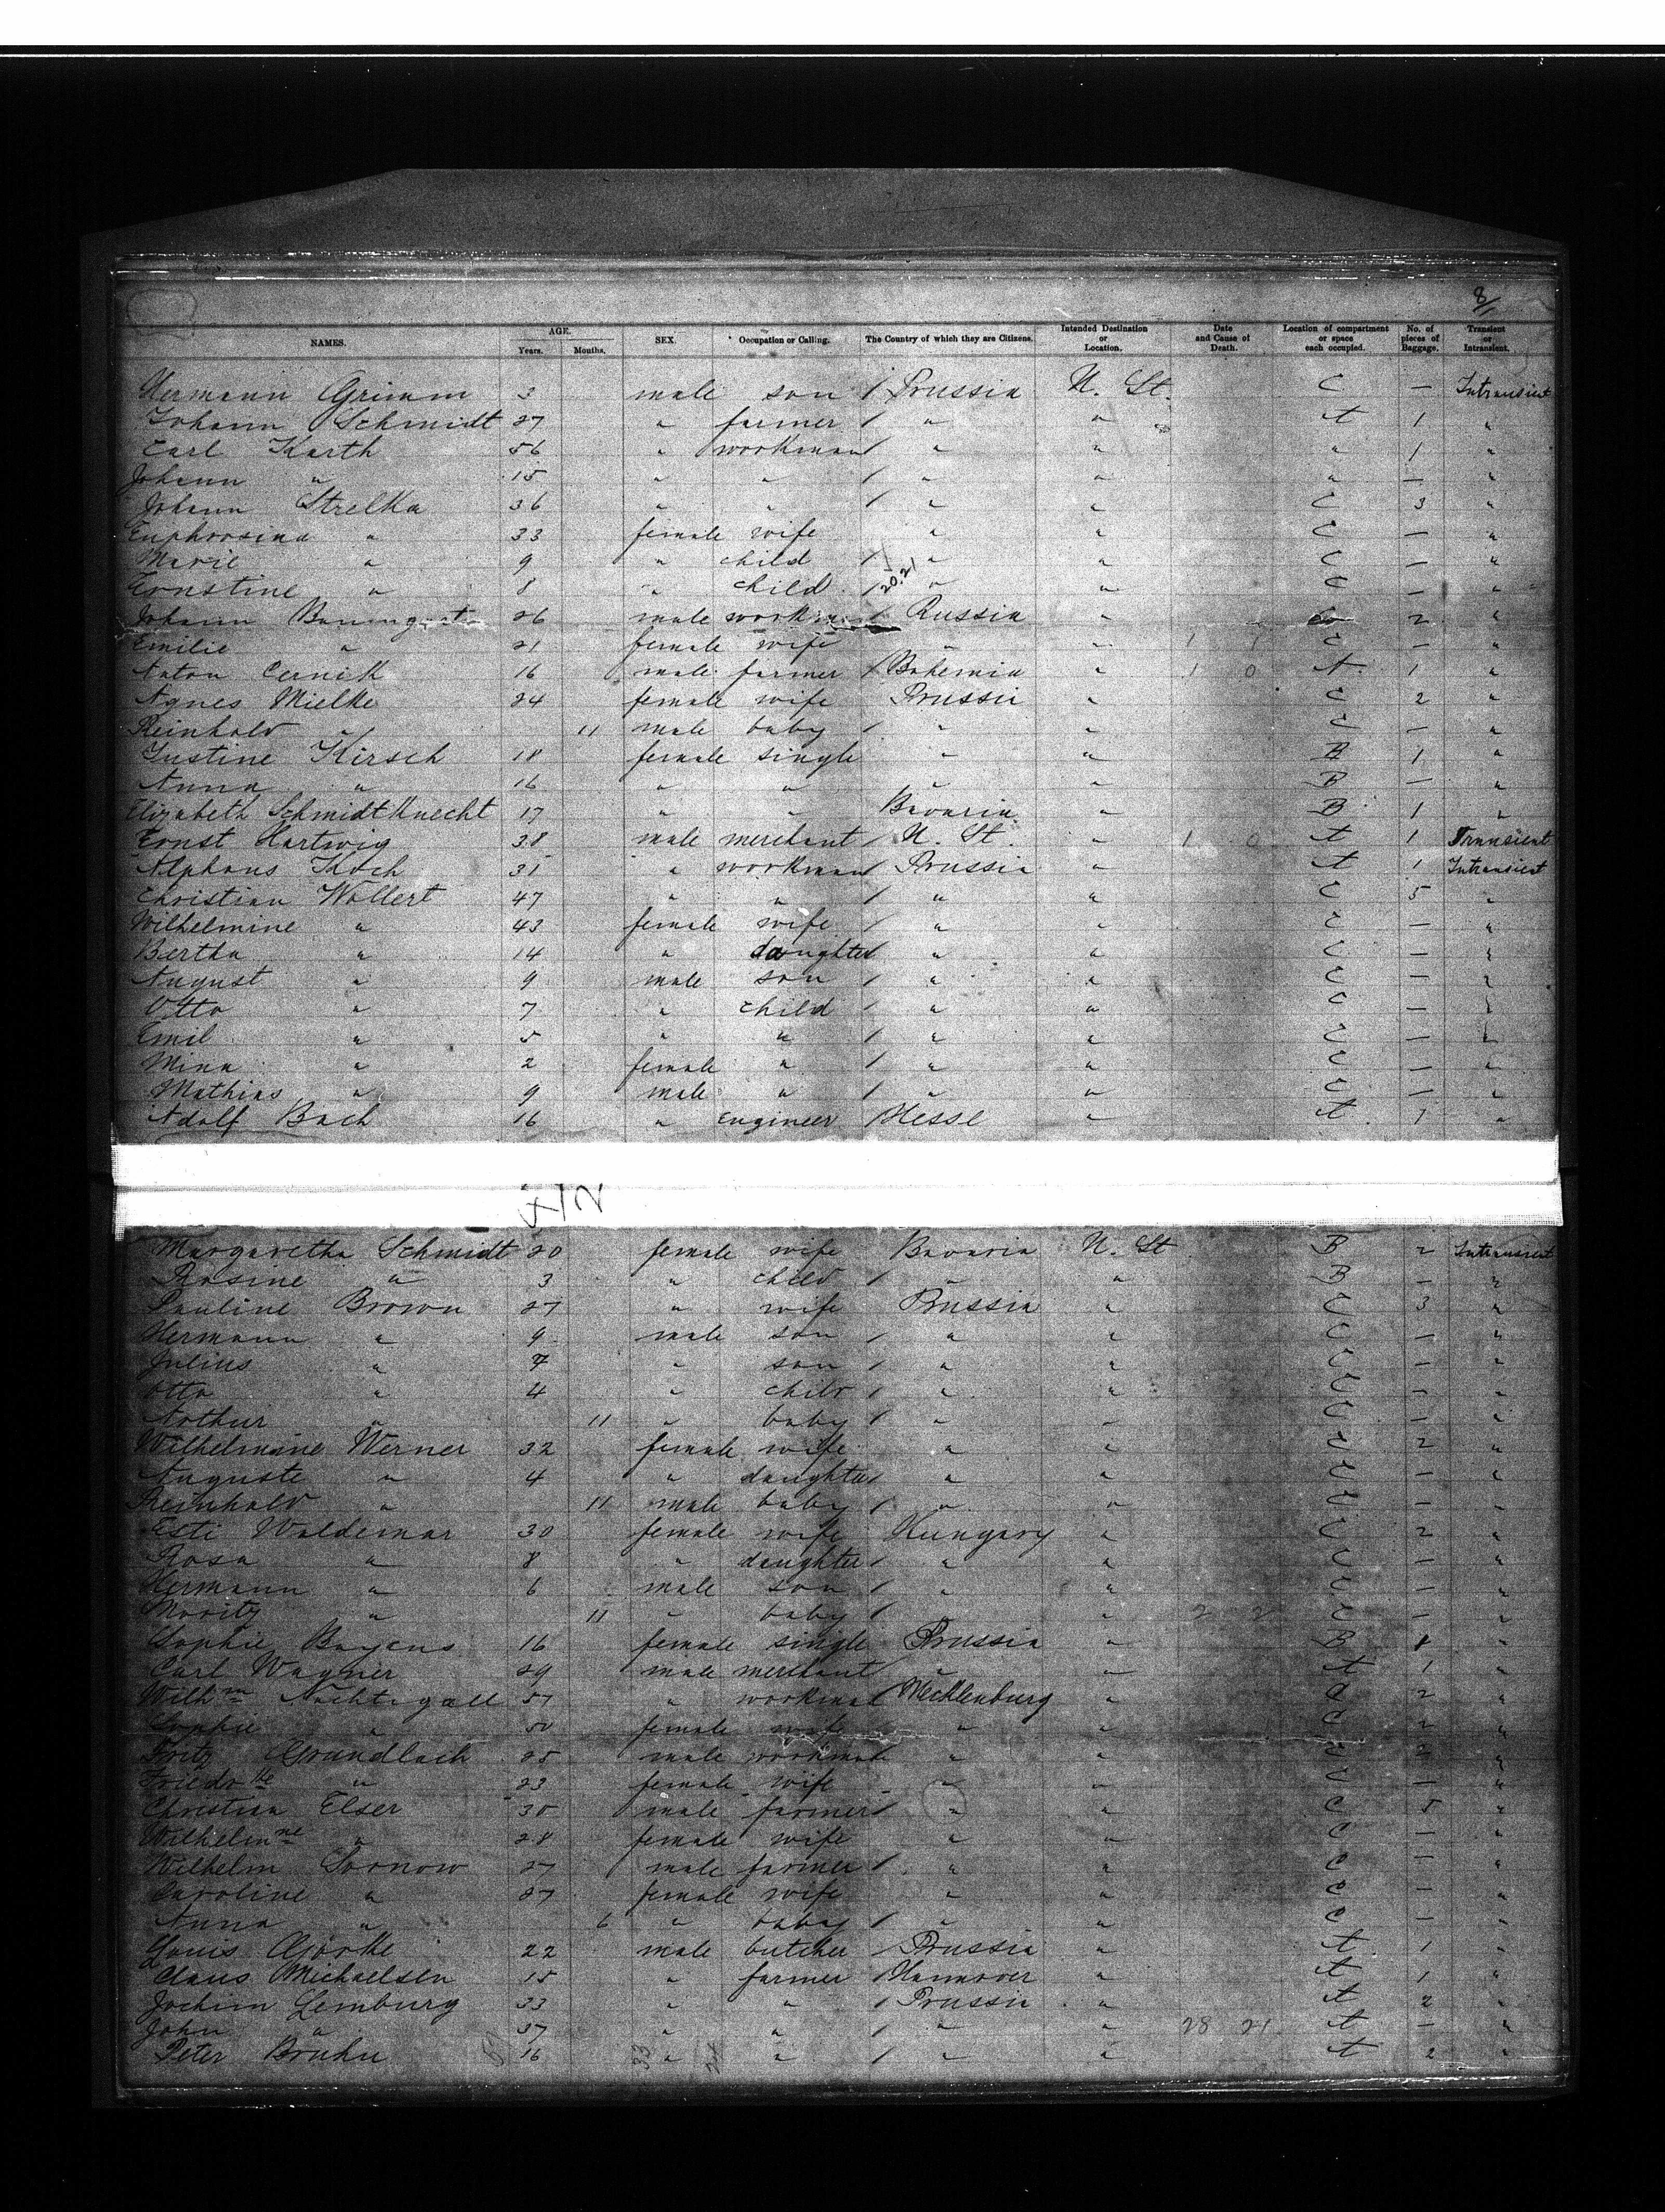 8/1
NAMES. AGE. Years. Months. SEX. Occupation or Calling. The Country of which they are Citizens. Intended Destination or Location. Date and Cause of Death. Location of compartment or space each occupied. No. of pieces of Baggage. Transient or Intransient.
Hermann Grimm 3 male son / Prussia U. St. C — Intransient
Johann Schmidt 27 " farmer / " " A 1 "
Carl Karth 56 " workman / " " " 1 "
Johann " 15 " " / " " " — "
Johann Strelka 36 " " / " " C 3 "
Euphrosina " 33 female wife " " C — "
Marie " 9 " child / " " C — "
Ernstine " 8 " child / 20.21 " " C — "
Johann 26 male / Russia " 2 "
Emilie " 21 female wife " " 1 1 C — "
Anton Cernik 16 male farmer / Bohemia " 1 0 A 1 "
Agnes Mielke 24 female wife Prussia " C 2 "
Reinhold " 11 male baby " " C — "
Justine Kirsch 18 female single " " B 1 "
Anna " 16 " " " " B — "
Elizabeth Schmidtknecht 17 " " Bavaria " B 1 "
Ernst Hartwig 38 male merchant / U. St. " 1 0 A 1 Transient
Alphons Koch 31 " workman Prussia " A 1 Intransient
Christian Wollert 47 " " / " " C 5 "
Wilhelmine " 43 female wife " " C — "
Bertha " 14 " daughter / " " C — "
August " 9 male son / " " C — "
Otto " 7 " child / " " C — "
Emil " 5 " " / " " C — "
Mina " 2 female " / " " C — "
Mathias " 9 male " / " " C — "
Adolf Bach 16 " Engineer / Hesse " A 1 "
Margaretha Schmidt 20 female wife Bavaria U. St B 2 Intransient
Rosine " 3 " child / " " B — "
Pauline Brown 27 " wife Prussia " C 3 "
Hermann " 9 male son / " " C — "
Julius " 7 " son / " " C — "
Otto " 4 " child / " " C — "
Arthur " 11 " baby / " " C — "
Wilhelmine Werner 32 female wife " " C 2 "
Auguste " 4 " daughter / " " C — "
Reinhold " 11 male baby / " " C — "
Esti Waldemar 30 female wife Hungary " C 2 "
Rosa " 8 " daughter / " " C — "
Hermann " 6 male son / " " C — "
Moritz " 11 " baby / " " 2 2 C — "
Sophie 16 female single Prussia " B 1 "
Carl Wagner 29 male merchant / " " A 1 "
Wilhm Nachtigall 57 " workman / Mecklenburg " C 2 "
Sophie " 50 female wife " " C 2 "
Fritz Grundlach 25 male workman " " C 2 "
Friedrke " 23 female wife " " C — "
Christian Elser 30 male farmer / " " C 5 "
Wilhelmne " 28 female wife " " C — "
Wilhelm Sornow 27 male farmer / " " C — "
Caroline " 27 female wife " " C — "
Anna " 6 " baby / " " C — "
Louis Gjorke 22 male butcher / Prussia " A 1 "
Claus Michaelsen 15 " farmer / Hannover " A 1 "
Jochim Lemburg 33 " " / Prussia " A 2 "
John " 37 " " / " " 28 21 A — "
Peter Bruhn 16 33 " 24 " / " " A 2 "